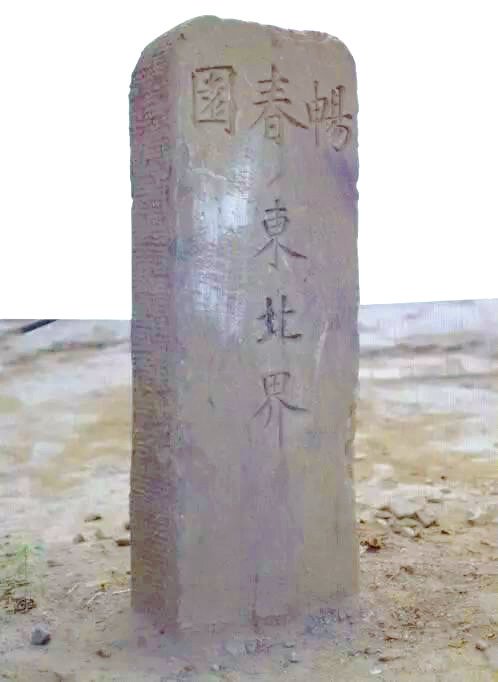 暢春園
東北界